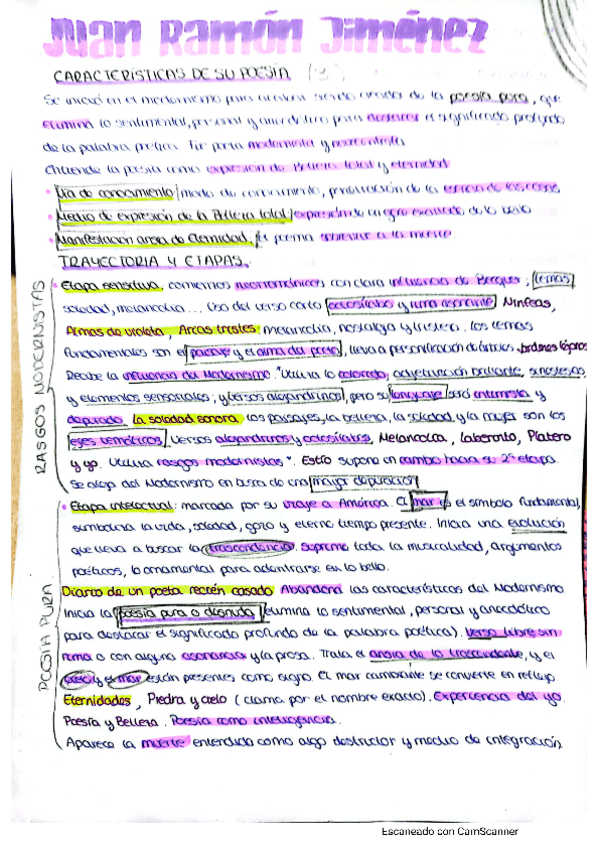 Juan Ramón Jiménez
CARACTERÍSTICAS DE SU POESÍA
Se inició en el modernismo para acabar siendo creador de la poesía pura, que
elimina lo sentimental, personal y anecdótico para destacar el significado profundo
de la palabra poética. Fue poeta modernista y novecentista
Entiende la poesía como expresión de Belleza total y eternidad
• Vía de conocimiento modo de conocimiento, penetración de la esencia de las cosas
• Medio de expresión de la Belleza total expresión de un gozo exaltado de lo bello
• Manifestación ansia de Eternidad, el poema sobrevive a la muerte.
TRAYECTORIA Y ETAPAS.
RASGOS MODERNISTAS
• Etapa sensitiva, comienzos neorrománticos con clara influencia de Becquer; temas
soledad, melancolía... Uso del verso corto octosílabo y rima asonante Ninfeas,
Almas de violeta, Arias tristes: melancolía, nostalgia y tristeza. Los temas
fundamentales son el paisaje y el alma del poeta, lleva a personificación de árboles.
Recibe la influencia del Modernismo. "Utiliza lo coloreado, adjetivación brillante, sinestesias
y elementos sensoriales, y versos alejandrinos, pero su lenguaje será intimista y
depurado. La soledad sonora los paisajes, la belleza, la soledad y la mujer son los
ejes temáticos. Versos alejandrinos y octosílabos, Melancolía, Laberinto, Platero
y yo. Utiliza rasgos modernistas". Estío supone un cambio hacia su 2ª etapa.
Se aleja del Modernismo en busca de una mayor depuración
POESÍA PURA
• Etapa intelectual: marcada por su viaje a América. El mar es el símbolo fundamental,
simboliza la vida, soledad, gozo y eterno tiempo presente. Inicia una evolución
que lleva a buscar la trascendencia. Suprime toda la musicalidad, argumentos
poéticos, lo ornamental para adentrarse en lo bello.
Diario de un poeta recién casado Abandona las características del Modernismo
Inicia la poesía pura o desnuda (elimina lo sentimental, personal y anecdótico
para destacar el significado profundo de la palabra poética). Verso libre sin
rima o con alguna asonancia y la prosa. Trata el ansia de lo trascendente, y el
cielo y el mar están presentes como signo. El mar cambiante se convierte en reflejo
Eternidades, Piedra y cielo (clama por el nombre exacto). Experiencia del yo.
Poesía y Belleza. Poesía como inteligencia.
Aparece la muerte entendida como algo destructor y medio de integración.
Escaneado con CamScanner